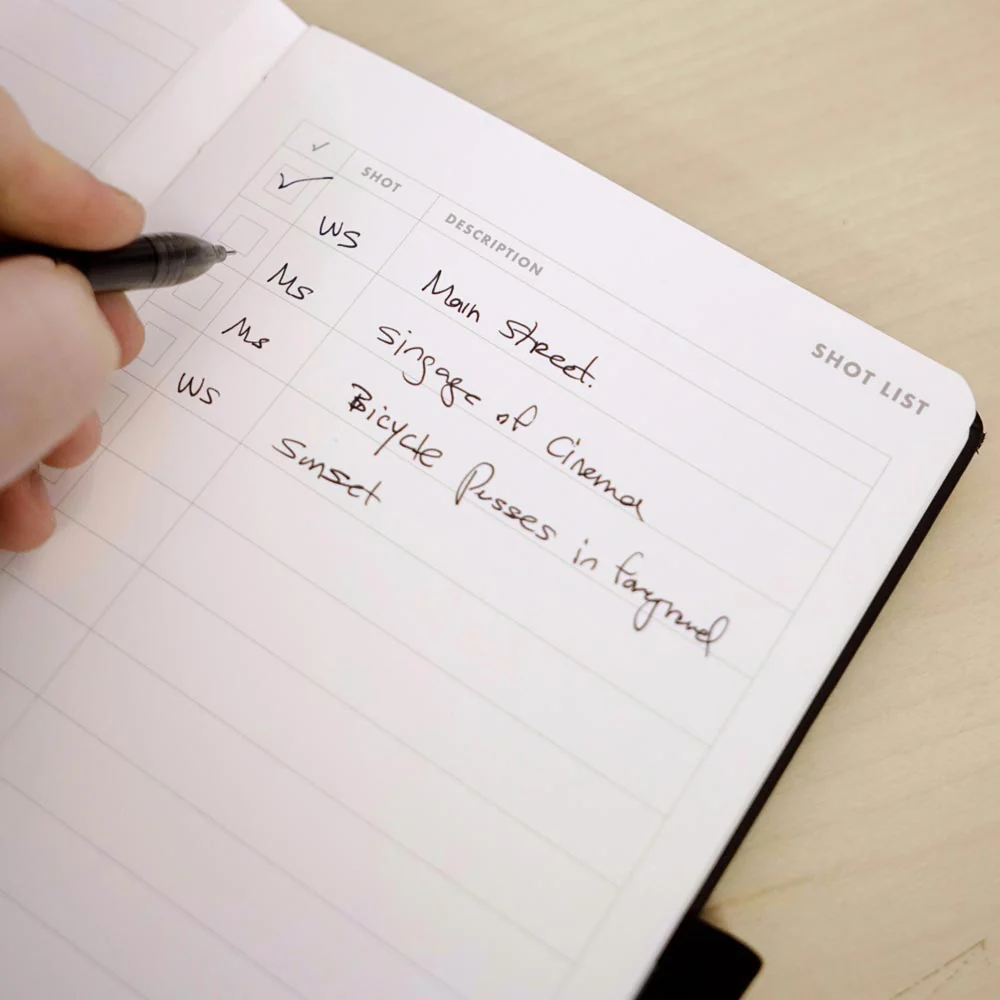 SHOT LIST
✓ SHOT DESCRIPTION
✓ WS Main Street.
Ms Singage of Cinema
Ms Bicycle Passes in
WS Sunset